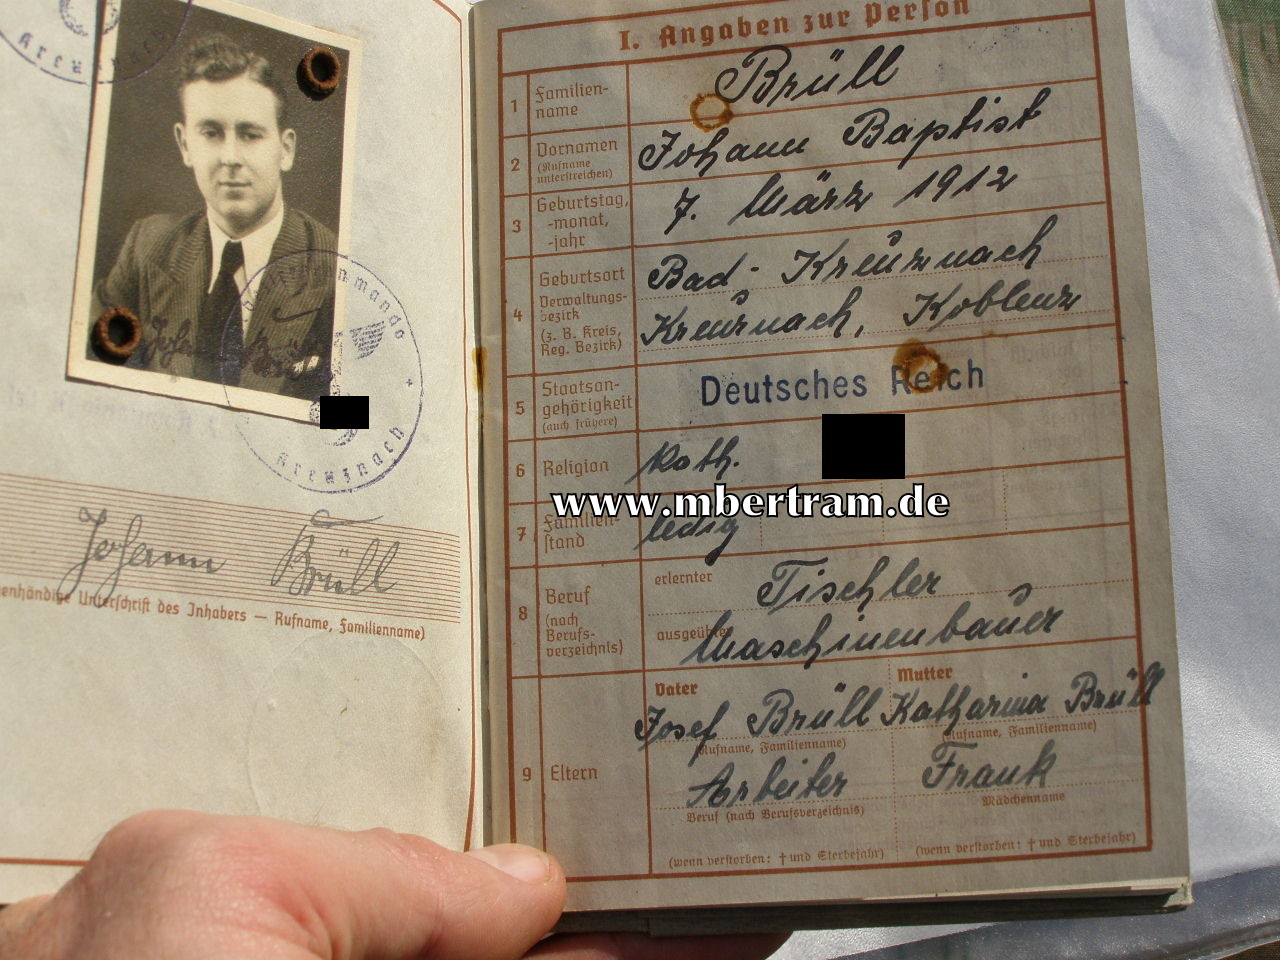 Kreuznach
Wehrmeldeamt
Kreuznach
Johann Brüll
(Eigenhändige Unterschrift des Inhabers — Rufname, Familienname)
I. Angaben zur Person
1 Familien-
name
Brüll
2 Vornamen
(Rufname
unterstreichen)
Johann Baptist
3 Geburtstag,
-monat,
-jahr
7. März 1912
4 Geburtsort
Verwaltungs-
bezirk
(z. B. Kreis,
Reg. Bezirk)
Bad-Kreuznach
Kreuznach, Koblenz
5 Staatsan-
gehörigkeit
(auch frühere)
Deutsches Reich
6 Religion
kath.
www.mbertram.de
7 Familien-
stand
ledig
8 Beruf
(nach
Berufs-
verzeichnis)
erlernter
Tischler
ausgeübter
Maschinenbauer
9 Eltern
Vater
Josef Brüll
(Rufname, Familienname)
Arbeiter
Beruf (nach Berufsverzeichnis)
(wenn verstorben: † und Sterbejahr)
Mutter
Katharina Brüll
(Rufname, Familienname)
Frank
Mädchenname
(wenn verstorben: † und Sterbejahr)